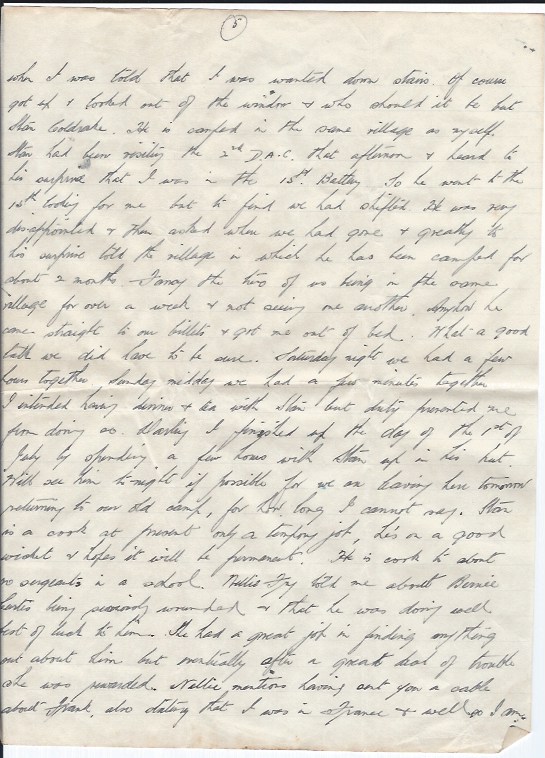 5
when I was told that I was wanted down stairs. Of course
got up & looked out of the window & who should it be but
Stan Coldrake. He is camped in the same village as myself.
Stan had been visiting the 2nd D.A.C. that afternoon & heard to
his surprise that I was in the 15th Battery. So he went to the
15th looking for me but to find we had shifted. He was very
disappointed & then asked where we had gone & greatly to
his surprise told the village in which he has been camped for
about 2 months. Fancy the two of us being in the same
village for over a week & not seeing one another. Anyhow he
came straight to our billets & got me out of bed. What a good
talk we did have to be sure. Saturday night we had a few
hours together, Sunday midday we had a few minutes together
I intended having dinner & tea with Stan but duty prevented me
from doing so. Darling I finished up the day of the 1st of
July by spending a few hours with Stan up in his hut.
Will see him to-night if possible for we are leaving here tomorrow
returning to our old camp, for how long I cannot say. Stan
is a cook at present only a tempory job, he's on a good
wicket & hopes it will be permanent. He is cook to about
sergeants in a school. Nellie Fry told me about Bernie
being seriously wounded & that he was doing well
best of luck to him. She had a great job in finding anything
out about him but eventically after a great deal of trouble
she was rewarded. Nellie mentions having sent you a cable
about Frank, also stating that I was in France & well so I am.